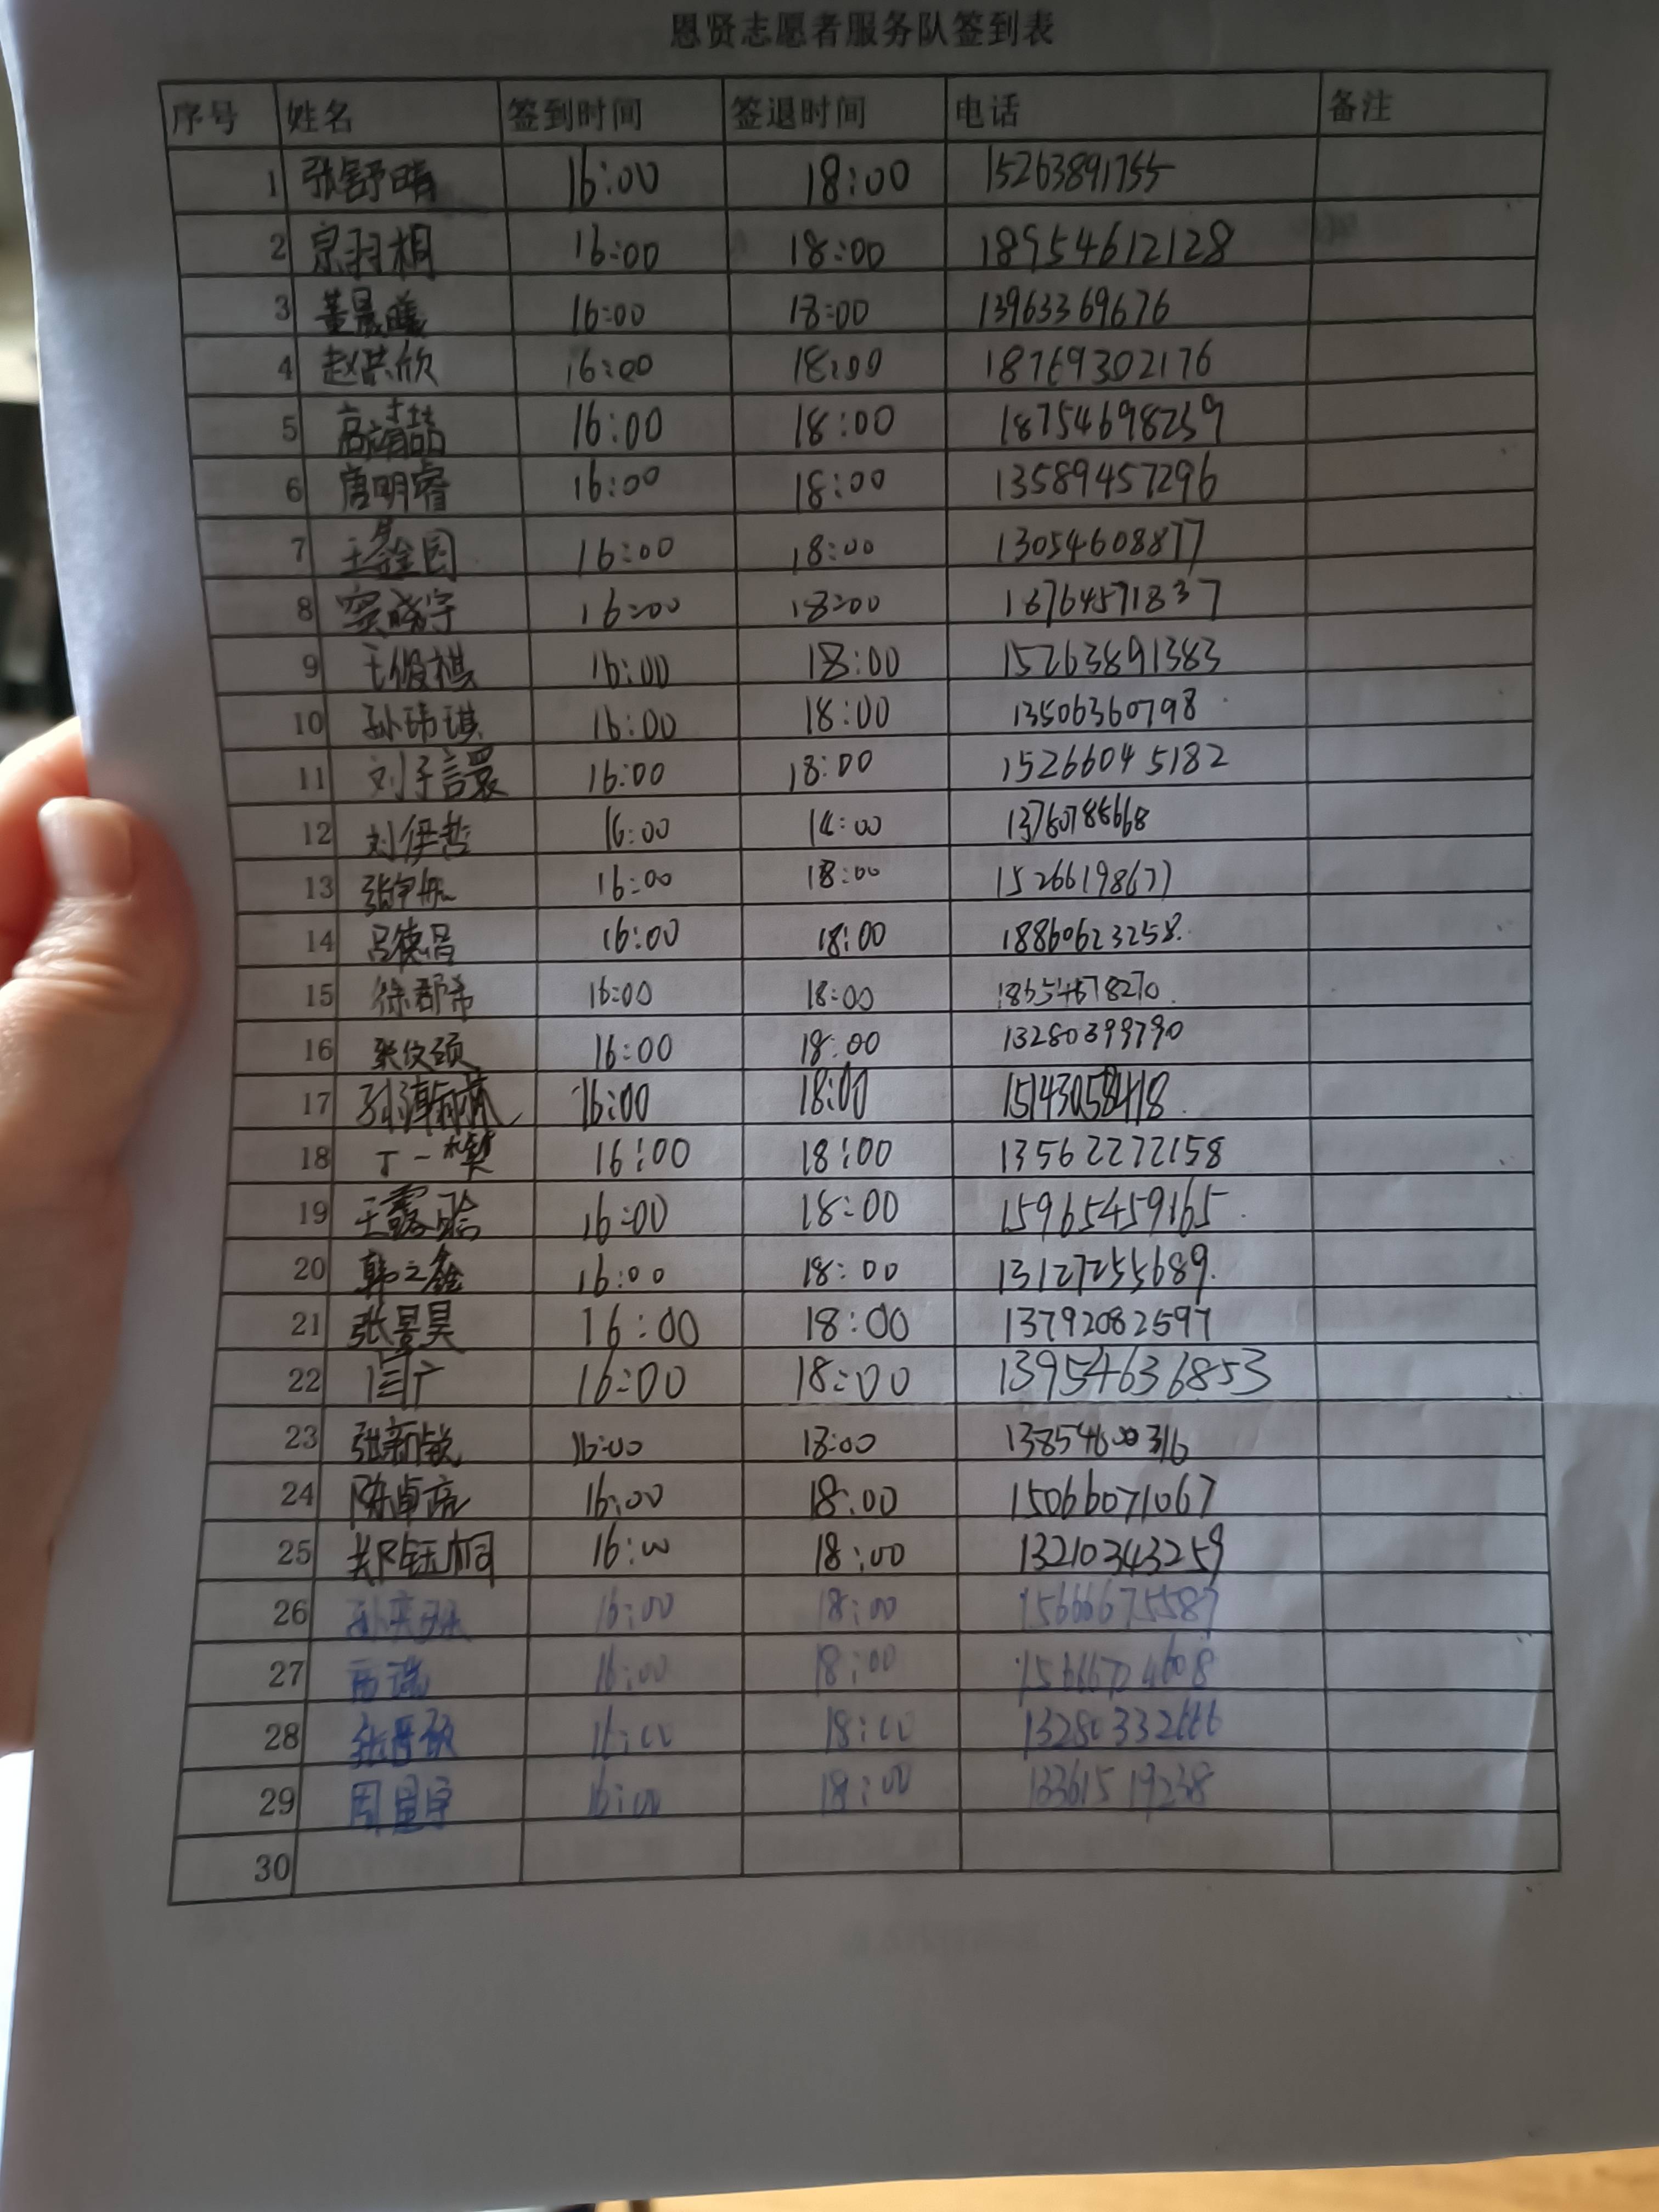 恩贤志愿者服务队签到表
序号 姓名 签到时间 签退时间 电话 备注
1 张舒晴 16:00 18:00 15263891755
2 宗羽桐 16:00 18:00 18954612128
3 董晨曦 16:00 18:00 13963369676
4 赵洪欣 16:00 18:00 18769302176
5 高靖喆 16:00 18:00 18754698259
6 唐明睿 16:00 18:00 13589457296
7 16:00 18:00 13054608877
8 窦晓宇 16:00 18:00 18764571837
9 王俊祺 16:00 18:00 15263891383
10 孙玮琪 16:00 18:00 13506360798
11 刘子譞 16:00 18:00 15266045182
12 刘伊哲 16:00
13 16:00 18:00 15266198677
14 吕德昌 16:00 18:00 18860623258.
15 徐郡希 16:00 18:00 18654678270
16 16:00 18:00 13280399790
17 16:00 18:00
18 丁一 16:00 18:00 13562272158
19 王露晗 16:00 18:00 15965459165
20 韩之鑫 16:00 18:00 13127255689.
21 张景昊 16:00 18:00 13792082597
22 16:00 18:00 13954636853
23 张新敏 16:00 18:00 13854600316
24 陈卓亮 16:00 18:00 15066071067
25 郑钰桐 16:00 18:00 13210343259
26 16:00 18:00 15666675587
27 16:00 18:00
28 16:00 18:00 13280332666
29 16:00 18:00 13361519238
30